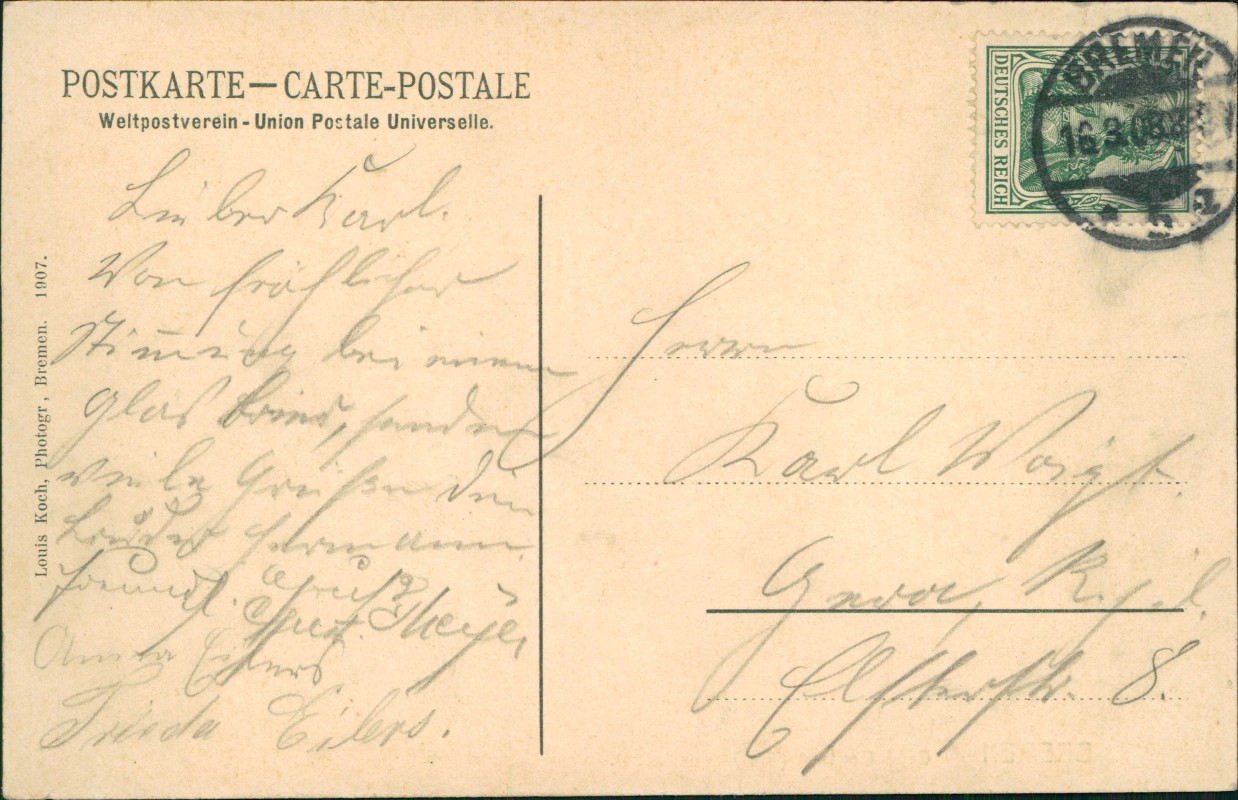 POSTKARTE — CARTE-POSTALE
Weltpostverein - Union Postale Universelle.
DEUTSCHES REICH
BREMEN
16.3.08
* 5 a
Louis Koch, Photogr., Bremen. 1907.
Lieber Karl.
Von fröhlicher
Stimmung bei einem
Glas Bier, sendet
viele Grüße Dein
Bruder Hermann.
Freundl. Gruß
Meyer
Eilers
Frieda Eilers.
Herrn
Karl Voigt.
Gera, R.j.L.
Elsterstr. 8.